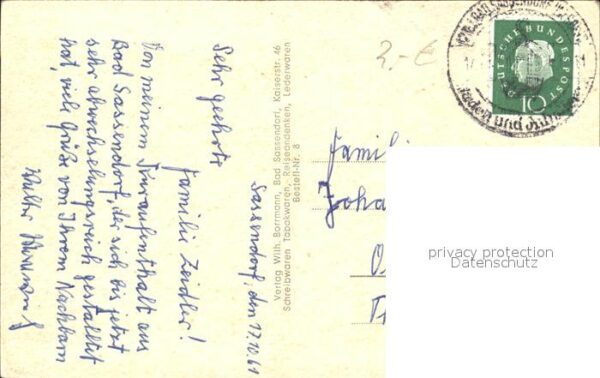 Sassendorf, den 17.10.61
Sehr geehrte
Familie Zeidler!
Von meinem Kuraufenthalt aus
Bad Sassendorf, der sich bis jetzt
sehr abwechselungsreich gestaltet
hat, viel Grüße von Ihrem Nachbarn
Walter
Verlag Wilh. Borrmann, Bad Sassendorf, Kaiserstr. 46
Schreibwaren Tabakwaren, Reiseandenken, Lederwaren
Bestell-Nr. 8
2,- €
DEUTSCHE BUNDESPOST
10
Famili
Joha
privacy protection
Datenschutz